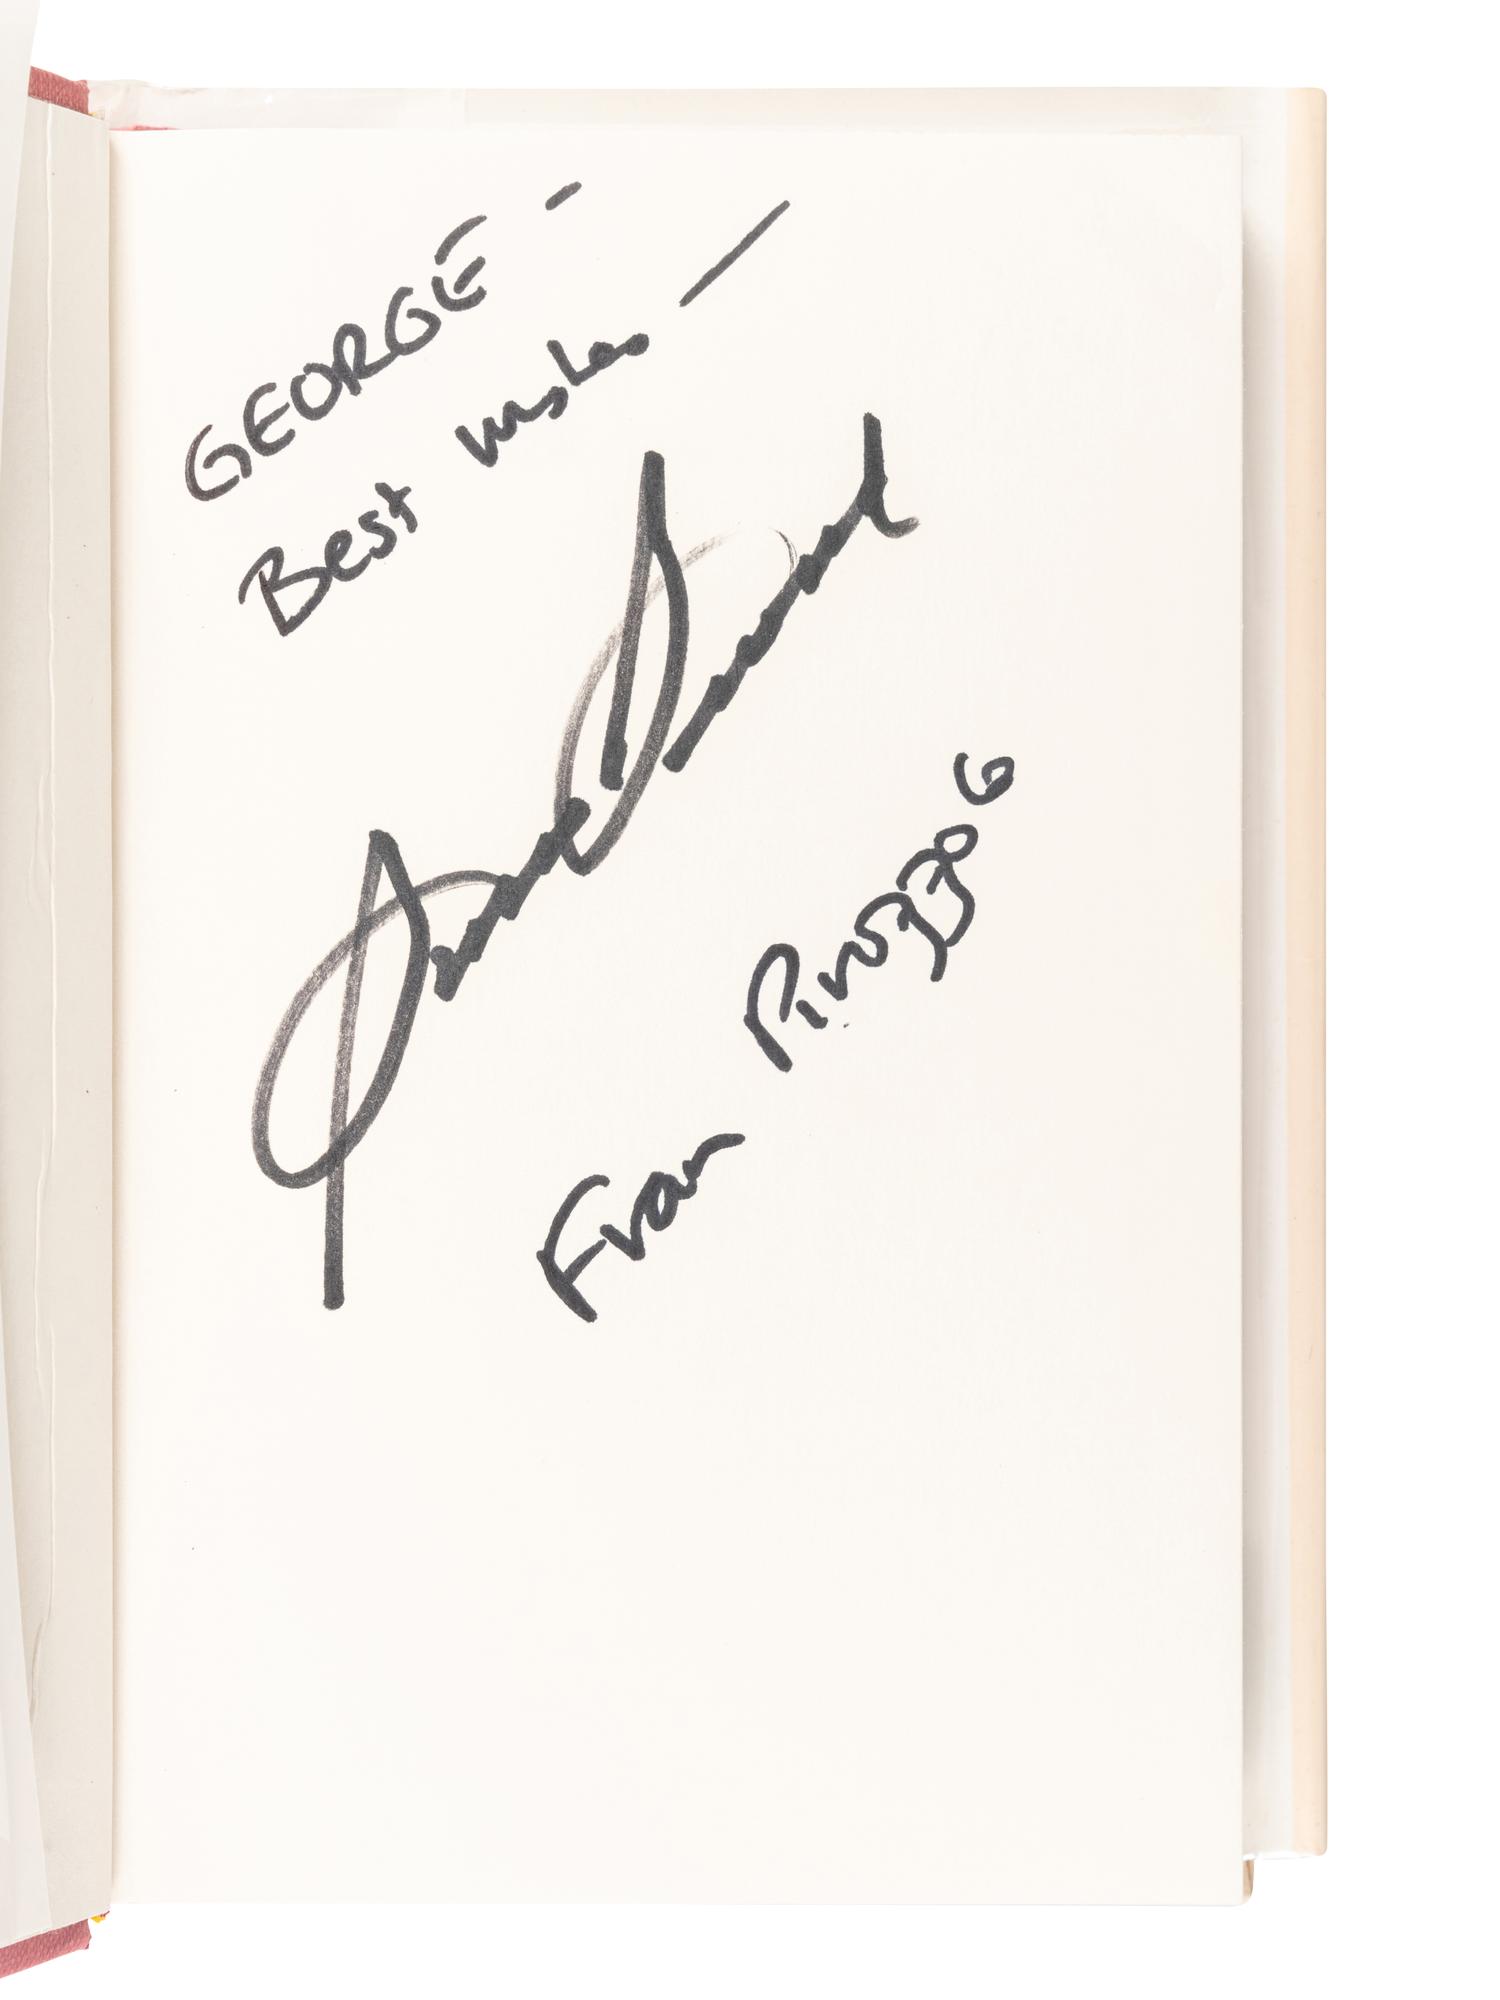 GEORGE -
Best wishes —
Fran Pirozzolo